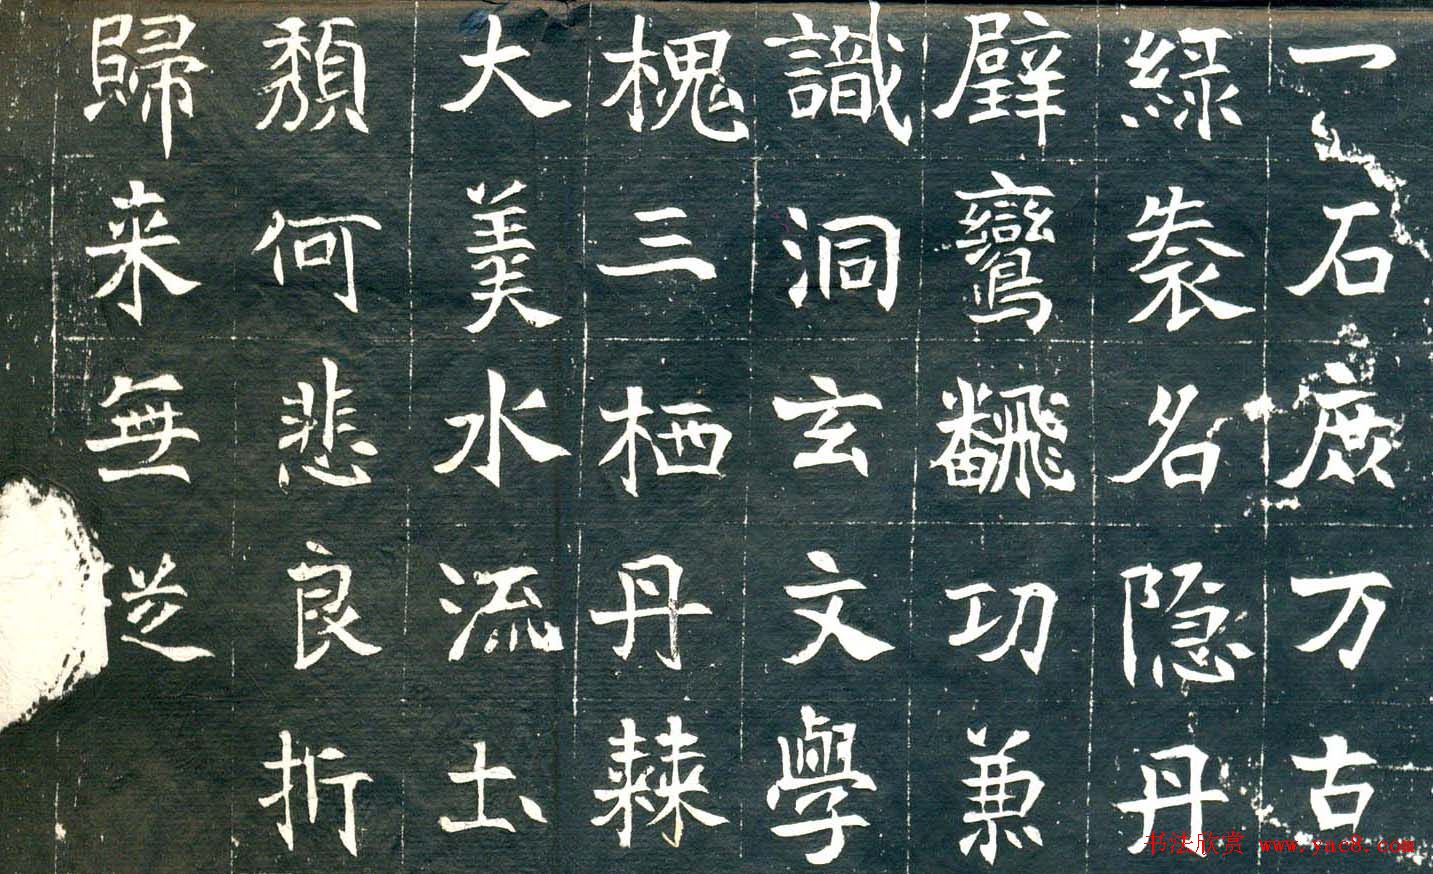 一石庶万古
綠袠名隐丹
壁鸞飜功兼
識洞玄文學
槐三栖丹棘
大美水流土
頽何悲良折
歸来無逆
书法欣赏 www.yac8.com